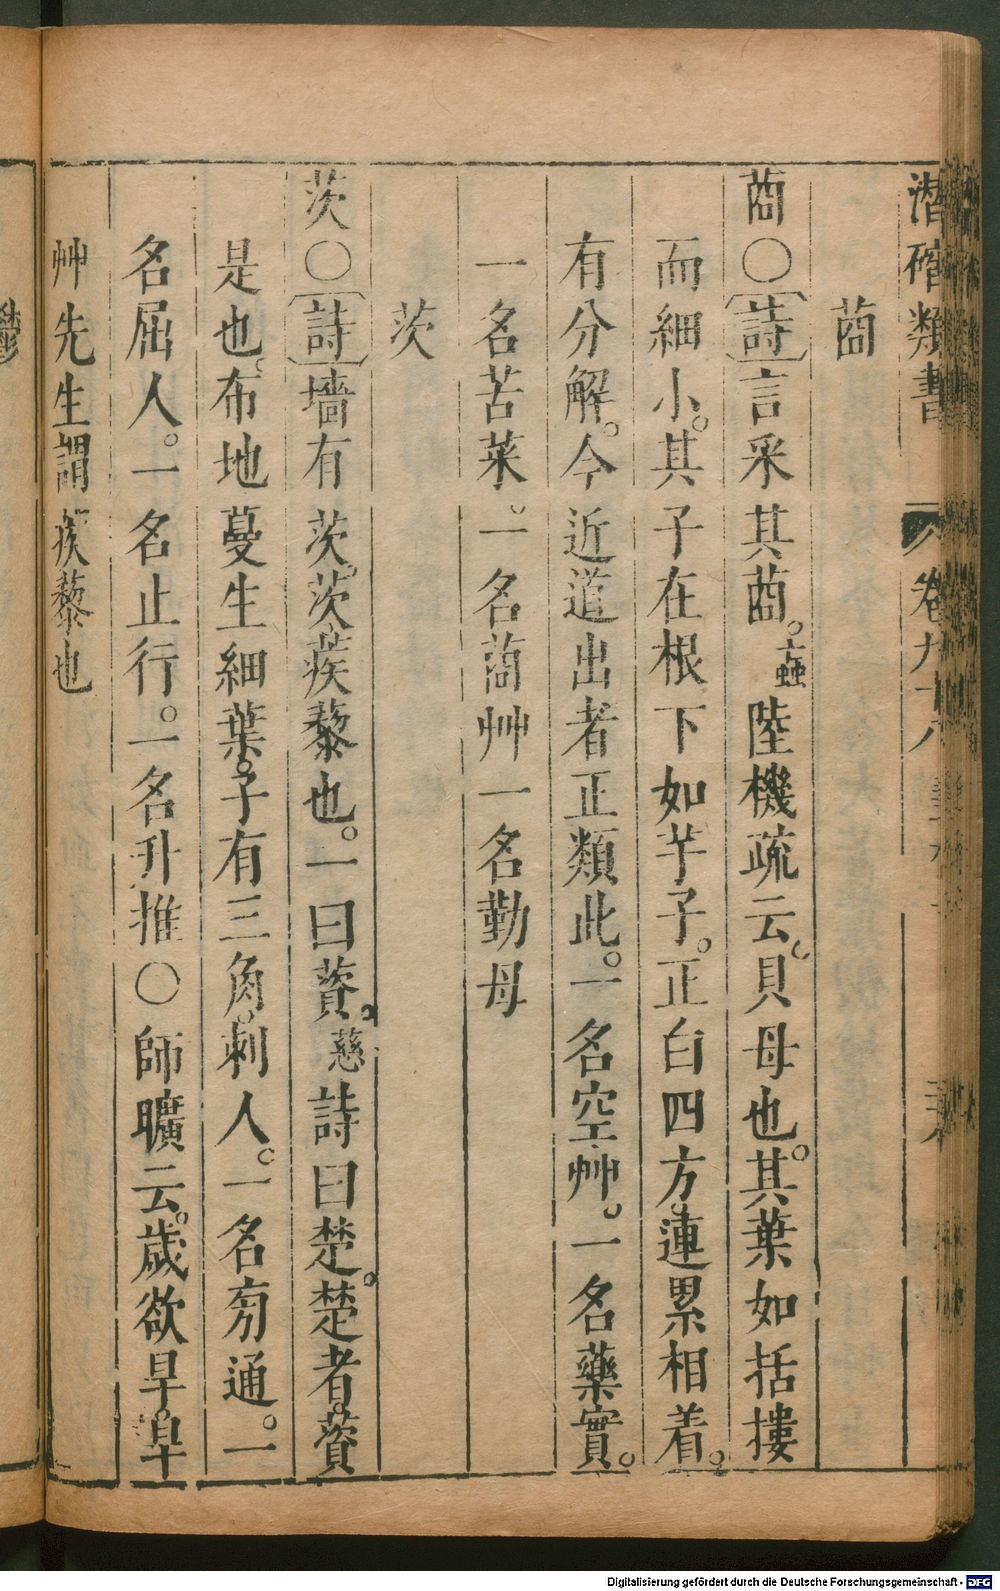 潛確類書 卷九十八
莔
莔○詩言采其莔。䖟陸機疏云。貝母也。其葉如括摟
而細小。其子在根下如芋子。正白四方。連累相着。
有分解。今近道出者正類此。一名空艸。一名藥實。
一名苦菜。一名莔艸一名勤母
茨
茨○詩墻有茨。茨蒺藜也。一曰薋。慈詩曰楚。楚者。薋
是也。布地蔓生細葉。子有三角。刺人。一名㫄通。一
名屈人。一名止行。一名升推○師曠云。歲欲旱。旱
艸先生謂蒺藜也
Digitalisierung gefördert durch die Deutsche Forschungsgemeinschaft - DFG